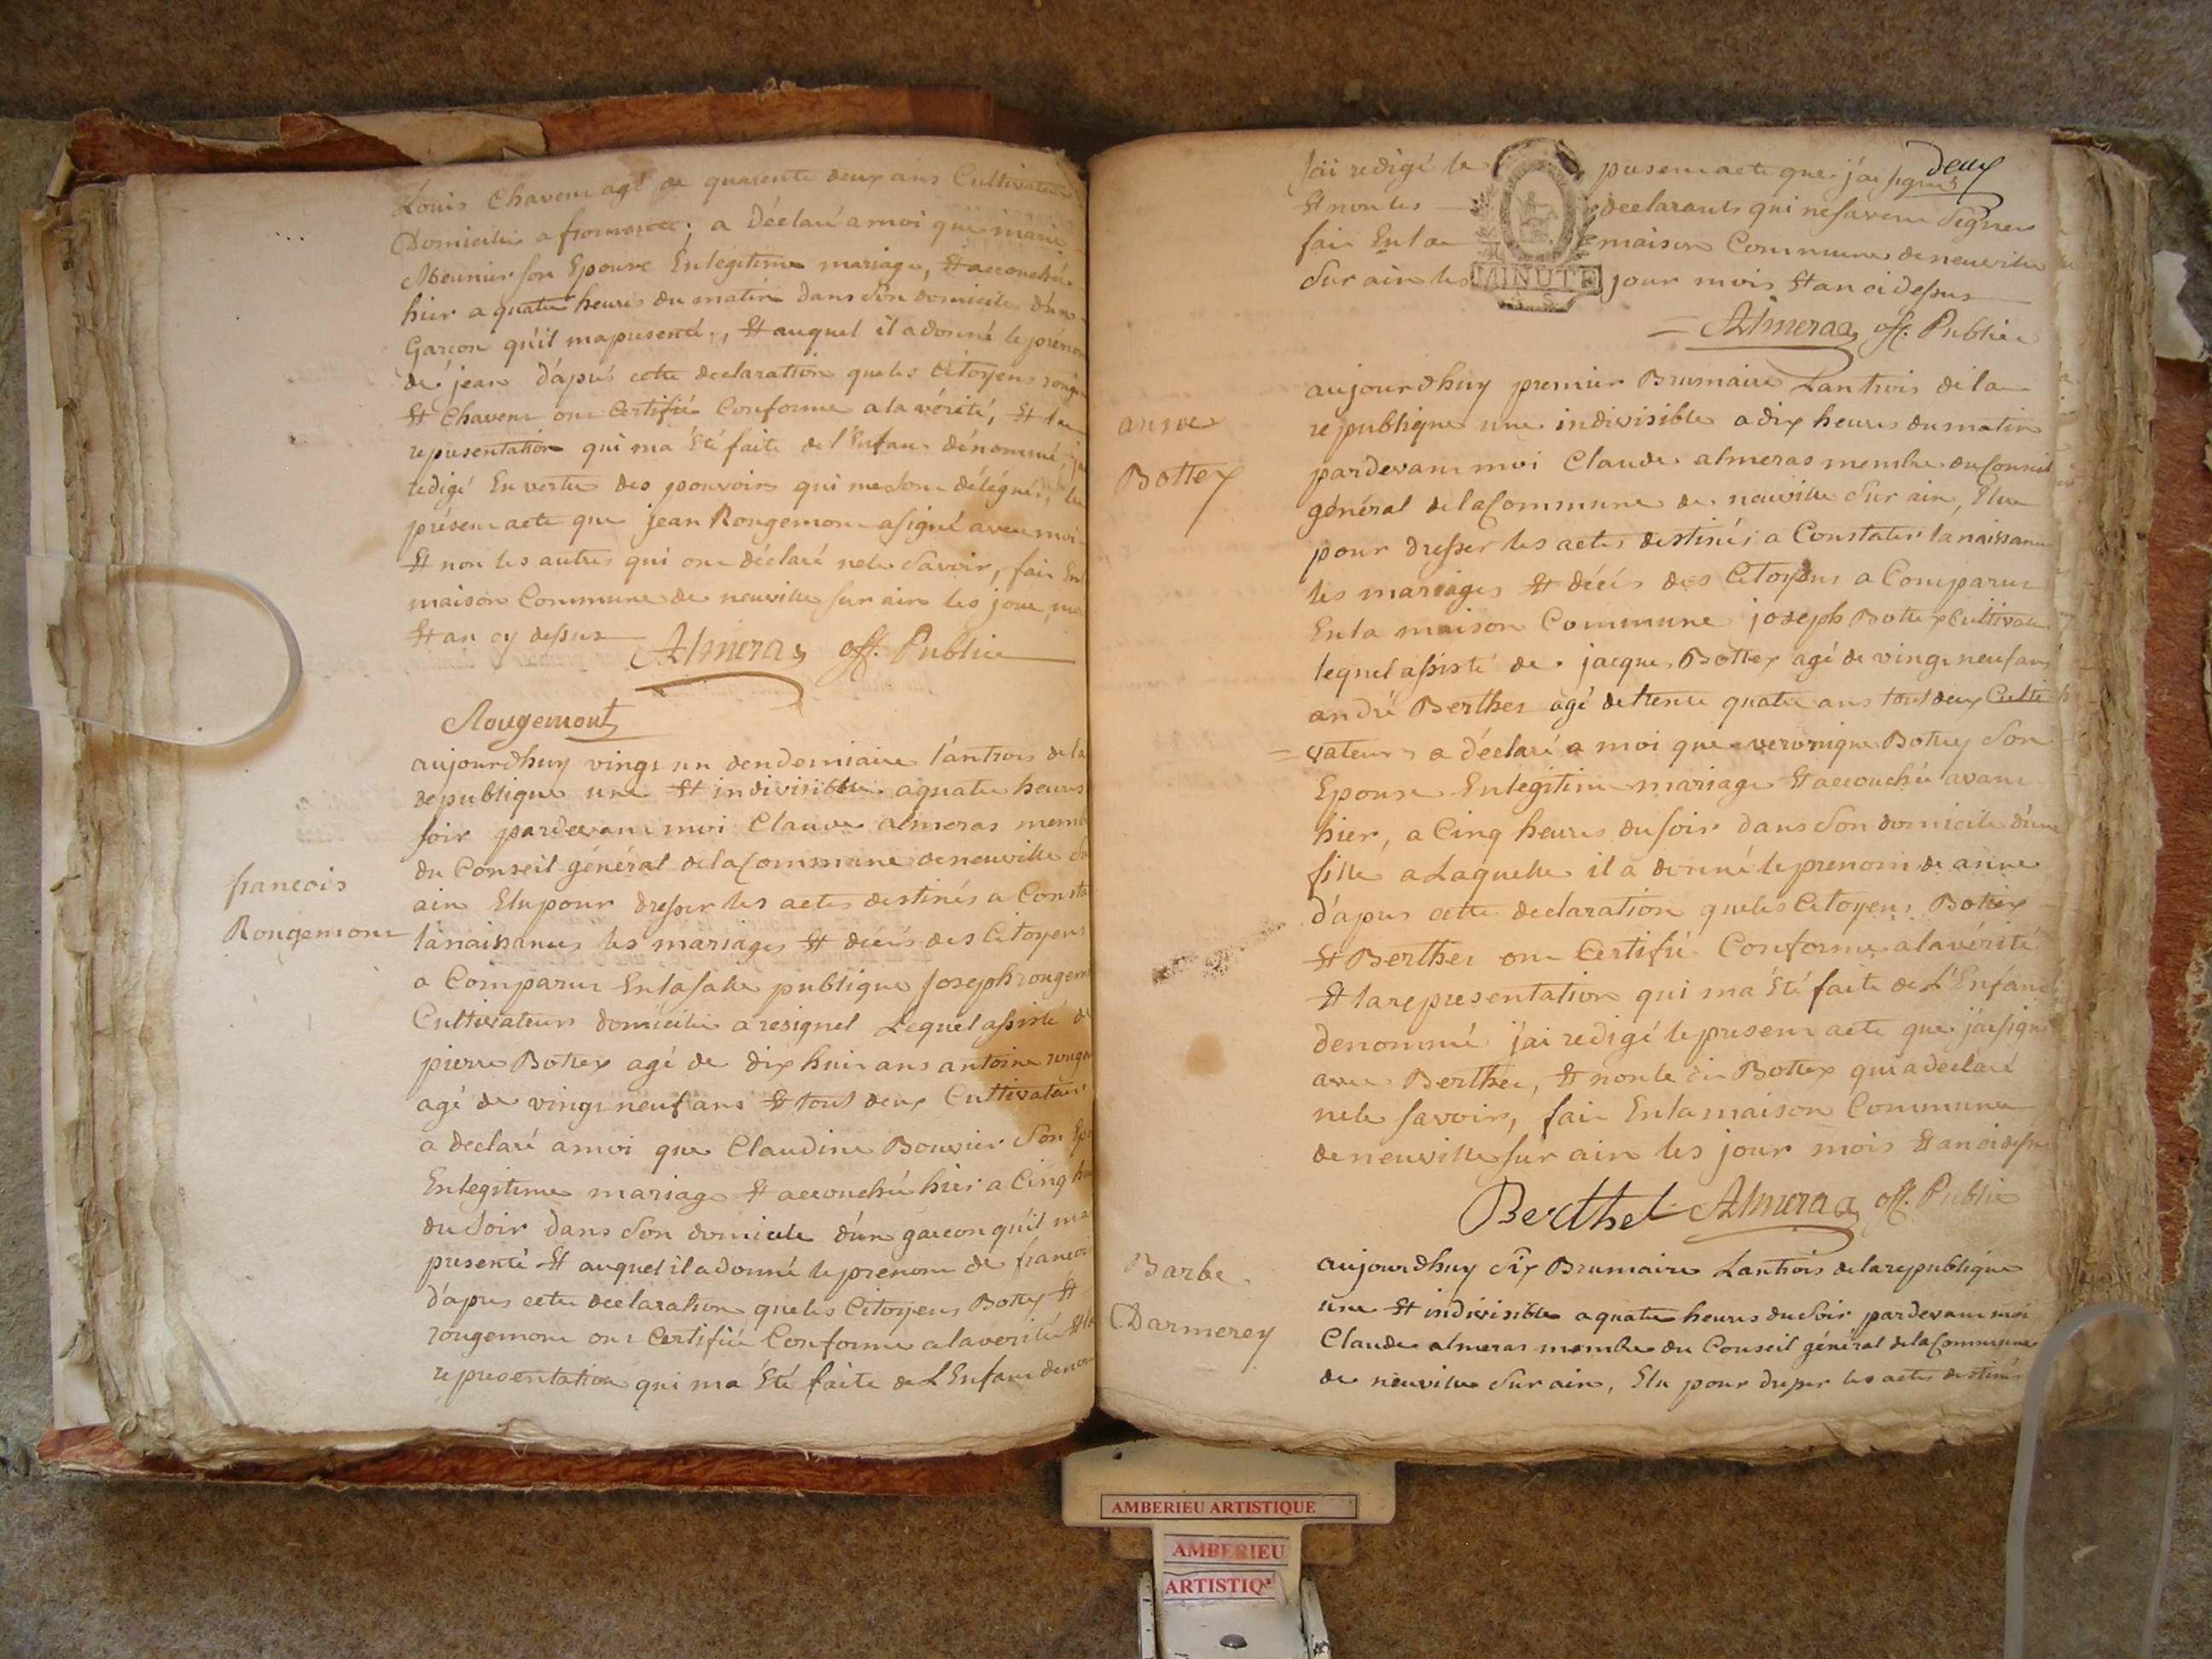 Louis Chavent agé de quarente deux ans Cultivateur
Domicilié a fromente, a déclaré a moi que marie
Meunier son Epouse En legitime mariage, Et accouchée
hier a quatre heures du matin dans son domicile d'un
Garcon qu'il ma presenté, Et auquel il a donné le prénom
de jean d'apres cette declaration que les Citoyens rouge
Et Chavent ont Certifié Conforme a la vérité, Et la
representation qui ma Eté faite de l'Enfant dénommé, jai
redigé En vertu des pouvoirs qui me sont délégués, le
présent acte que jean Rougemont a signé avec moi
Et non les autres qui ont déclaré ne le Savoir, fait En
maison Commune de neuville sur ain les jour, moi
Et an cy dessus Almeras off. Public
Rougemont
aujourdhuy vingt un vendemiaire l'an trois de la
republique une Et indivisible a quatre heures
soir pardevant moi Claude almeras memb
du Conseil général de la Commune de neuville Su
ain Elu pour dresser les actes destinés a Consta
francois
Rougemont
la naissances les mariages Et décés des Citoyens
a Comparut En la salle publique joseph rougem
Cultivateur domicilié a resignel Lequel assisté de
pierre Bottex agé de dix huit ans antoine rouge
agé de vingt neuf ans Et tout deux Cultivateur
a declaré a moi que Claudine Bouvier Son Epo
En legitime mariage Et accouché hier a Cinq heu
du Soir dans Son domicile d'un garcon qu'il ma
presenté Et auquel il a donné le prenom de francoi
d'apres cette declaration que les Citoyens Bottex Et
rougemont ont Certifié Conforme a la verité Et la
representation qui ma Eté faite de L'Enfant denom
deux
J'ai redigé le present acte que j'ai signé
Et non les declarants qui ne savent Signer
fait En la maison Commune de neuville
Sur ain les jour mois Et an ci dessus
MINUTE
Almeras off. Public
anne
Bottex
aujourdhuy premier Brumaire Lan trois de la
republique une indivisible a dix heures du matin
pardevant moi Claude almeras membre du Conseil
général de la Commune de neuville Sur ain, Elue
pour dresser les actes destinés a Constater la naissance
les mariages Et décés des Citoyens a Comparut
En la maison Commune joseph Bottex Cultivate
lequel assisté de jacque Bottex agé de vingt neuf ans
andré Berthet agé de trente quatre ans tout deux Culti
= vateurs a déclaré a moi que veronique Bottex Son
Epouse En legitime mariage Et accouchée avant
hier, a Cinq heures du soir dans Son domicile d'une
fille a Laquelle il a donné le prenom de anne
d'apres cette declaration que les Citoyens Bottex
Et Berthet ont Certifié Conforme a la vérité
Et la representation qui ma Eté faite de L'Enfant
denommé j'ai redigé le present acte que j'ai signé
avec Berthet, Et non le dit Bottex qui a declaré
ne le savoir, fait En la maison Commune
de neuville sur ain les jour mois Et an ci dessu
Berthet Almeras off. Public
Barbe
Darmerey
aujourdhuy Six Brumaire Lan trois de la republique
une Et indivisible a quatre heures du Soir pardevant moi
Claude almeras membre du Conseil général de la Commune
de neuville Sur ain, Elu pour dresser les actes destinés
AMBERIEU ARTISTIQUE
AMBERIEU
ARTISTIQ